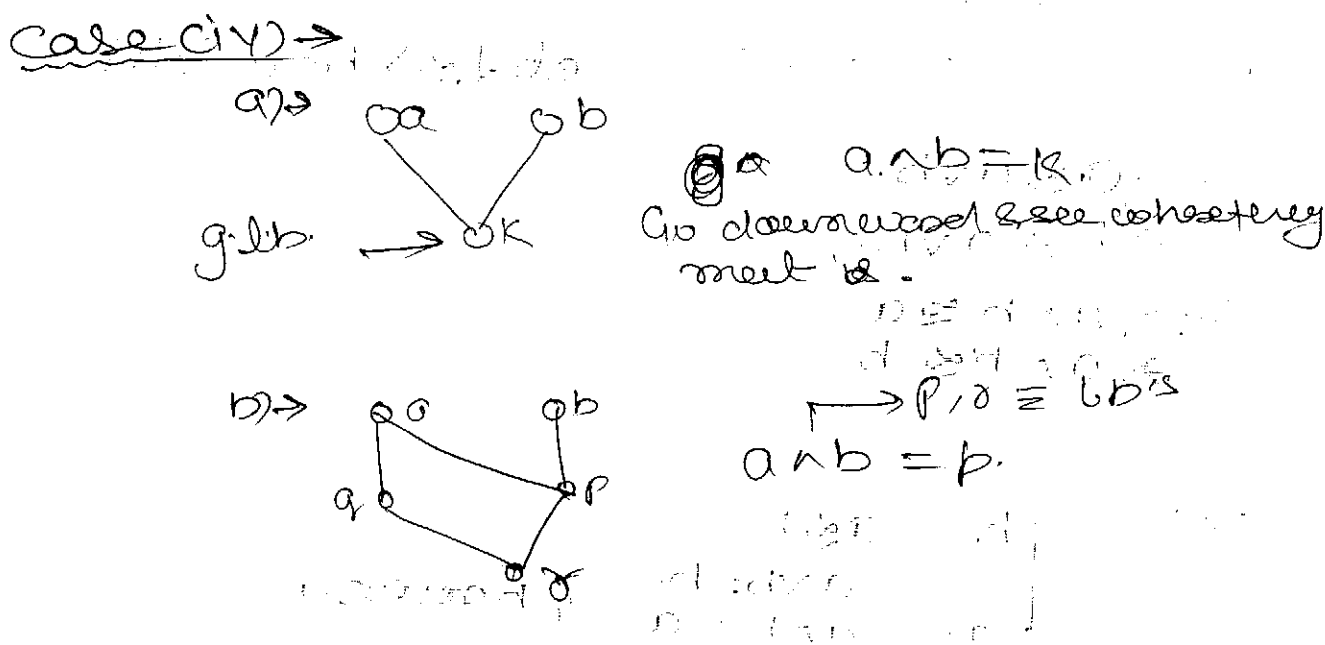 Case (iv) →
a) →
a b
a ∧ b = K.
g.l.b. → K
Go downward & see where they
meet is.
b) →
a b
P, r ≡ lb's
a ∧ b = p.
q P
r